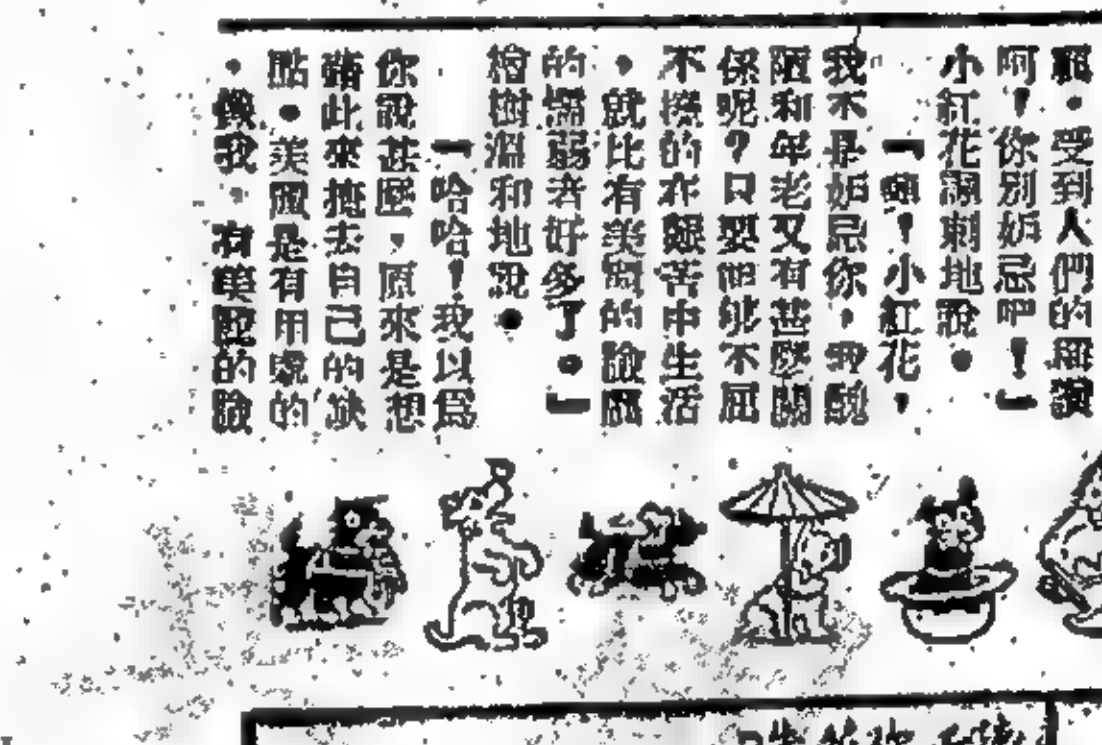 麗。受到人們的羅讚
阿!你別妒忌吧!」
小紅花諷刺地說。
「噢!小紅花,
我不是妒忌你,我醜
陋和年老又有甚麼關
係呢?只要能够不屈
不撓的在艱苦中生活
。就比有美麗的臉龐
的懦弱者好多了。」
檜樹溫和地說。
「哈哈!我以爲
你說甚麼,原來是想
藉此來掩去自己的缺
點。美麗是有用處的
。像我,有美麗的臉